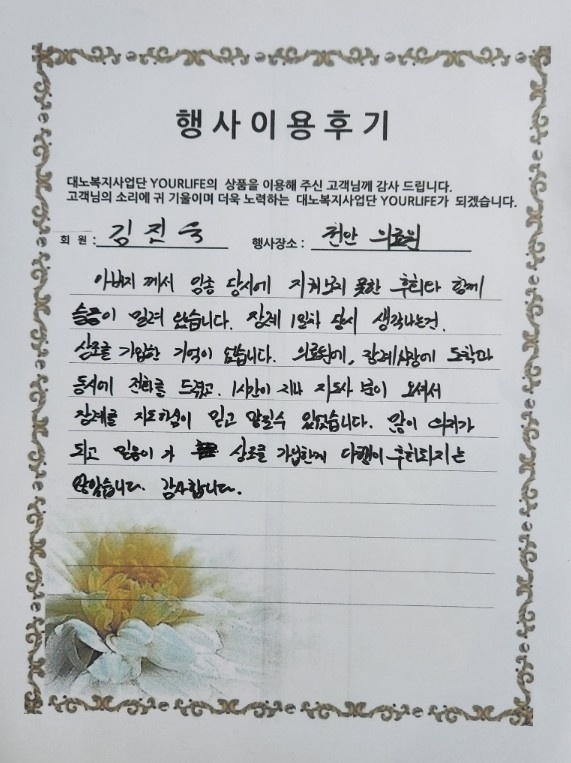 행사이용후기
대노복지사업단 YOURLIFE의 상품을 이용해 주신 고객님께 감사 드립니다.
고객님의 소리에 귀 기울이며 더욱 노력하는 대노복지사업단 YOURLIFE가 되겠습니다.
회 원 : 김진숙 행사장소 : 천안 의료원
아버지 께서 임종 당시에 지켜보지 못한 후회와 함께
슬픔이 밀려 왔습니다. 장례 1일차 당시 생각나는건.
상조를 가입한 기억이 있습니다. 의료원에, 장례식장에 도착과
동시에 전화를 드렸고. 1시간이 지나 지도사 님이 오셔서
장례를 지도하심이 믿고 맡길수 있었습니다. 많이 의지가
되고 믿음이 가 상조를 가입한게 다행이 후회되지는
않았습니다. 감사합니다.